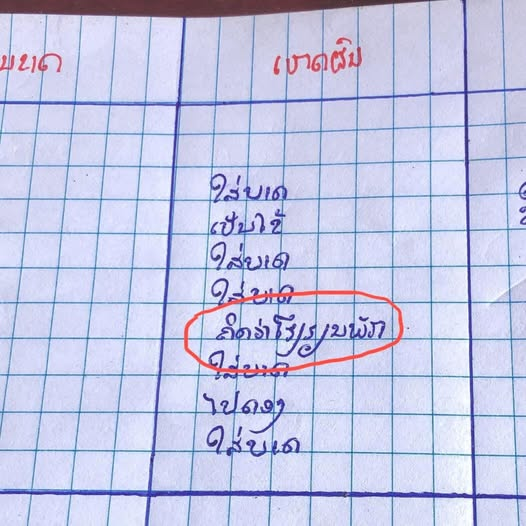 ເຫດຜົນ
ໃສ່ບາດ
ເປັນໄຂ້
ໃສ່ບາດ
ໃສ່ບາດ
ຄິດວ່າໂຮງຮຽນພັກ
ໃສ່ບາດ
ໄປດອງ
ໃສ່ບາດ